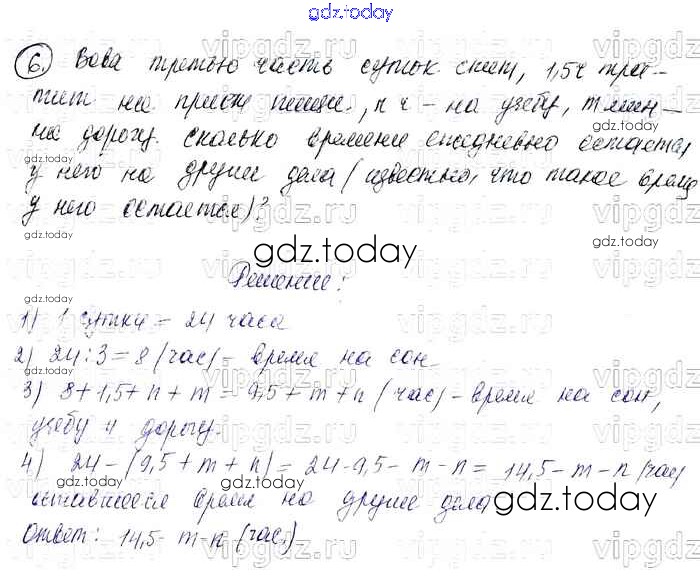 gdz.today
6. Вова третью часть суток спит, 1,5ч тра-
тит на прием пищи, n ч - на учебу, m мин -
на дорогу. Сколько времени ежедневно остается
у него на другие дела (известно, что такое время
у него остается)?
gdz.today
Решение:
1) 1 сутки = 24 часа
2) 24:3=8 (час) = время на сон.
3) 8+1,5+n+m = 9,5+m+n (час) - время на сон,
учебу и дорогу.
4) 24-(9,5+m+n) = 24-9,5-m-n = 14,5-m-n (час)
оставшееся время на другие дела
gdz.today
Ответ: 14,5-m-n (час)